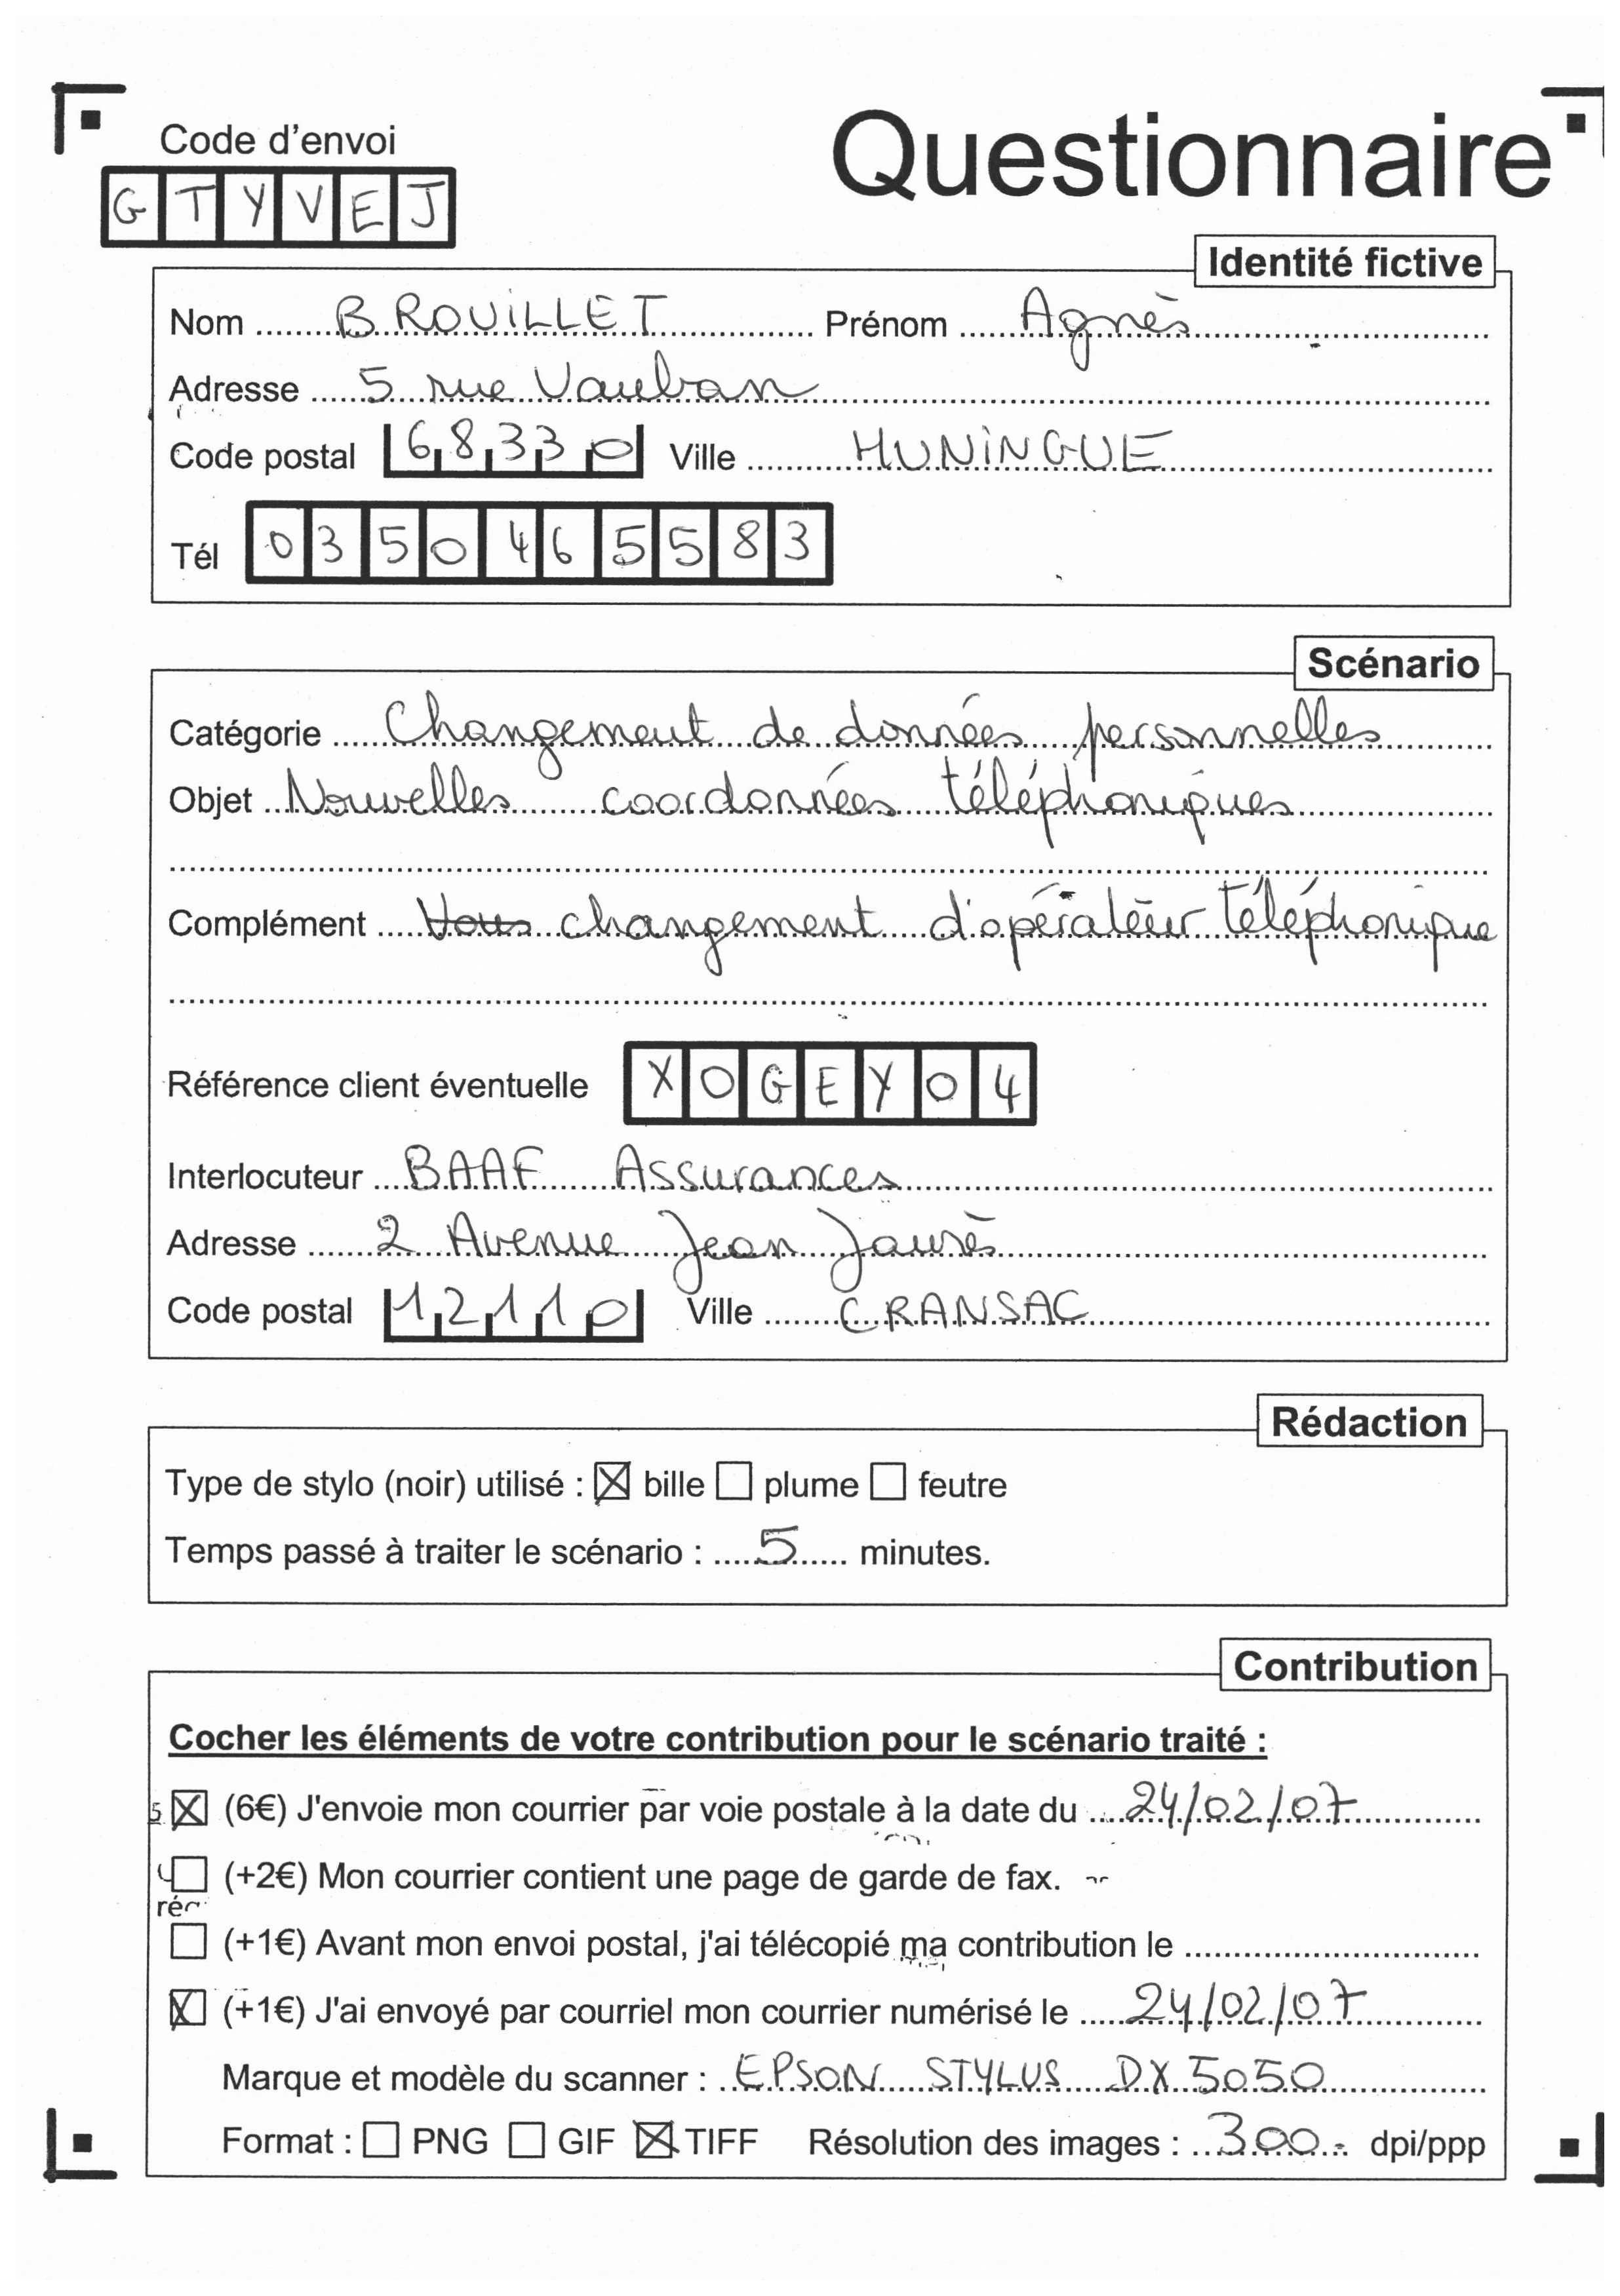 Code d'envoi
Questionnaire
GTYVEJ
Identité fictive
Nom BROUILLET Prénom Agnès
Adresse 5 rue Vauban
Code postal 68330 Ville HUNINGUE
Tél 0350465583
Scénario
Catégorie Changement de données personnelles
Objet Nouvelles coordonnées téléphoniques
Complément changement d'opérateur téléphonique
Référence client éventuelle XOGEY04
Interlocuteur BAAF Assurances
Adresse 2 Avenue Jean Jaurès
Code postal 12110 Ville CRANSAC
Rédaction
Type de stylo (noir) utilisé : ☒ bille ☐ plume ☐ feutre
Temps passé à traiter le scénario : 5 minutes.
Contribution
Cocher les éléments de votre contribution pour le scénario traité :
☒ (6€) J'envoie mon courrier par voie postale à la date du 24/02/07
☐ (+2€) Mon courrier contient une page de garde de fax.
☐ (+1€) Avant mon envoi postal, j'ai télécopié ma contribution le
☒ (+1€) J'ai envoyé par courriel mon courrier numérisé le 24/02/07
Marque et modèle du scanner : EPSON STYLUS DX 5050
Format : ☐ PNG ☐ GIF ☒ TIFF Résolution des images : 300 dpi/ppp